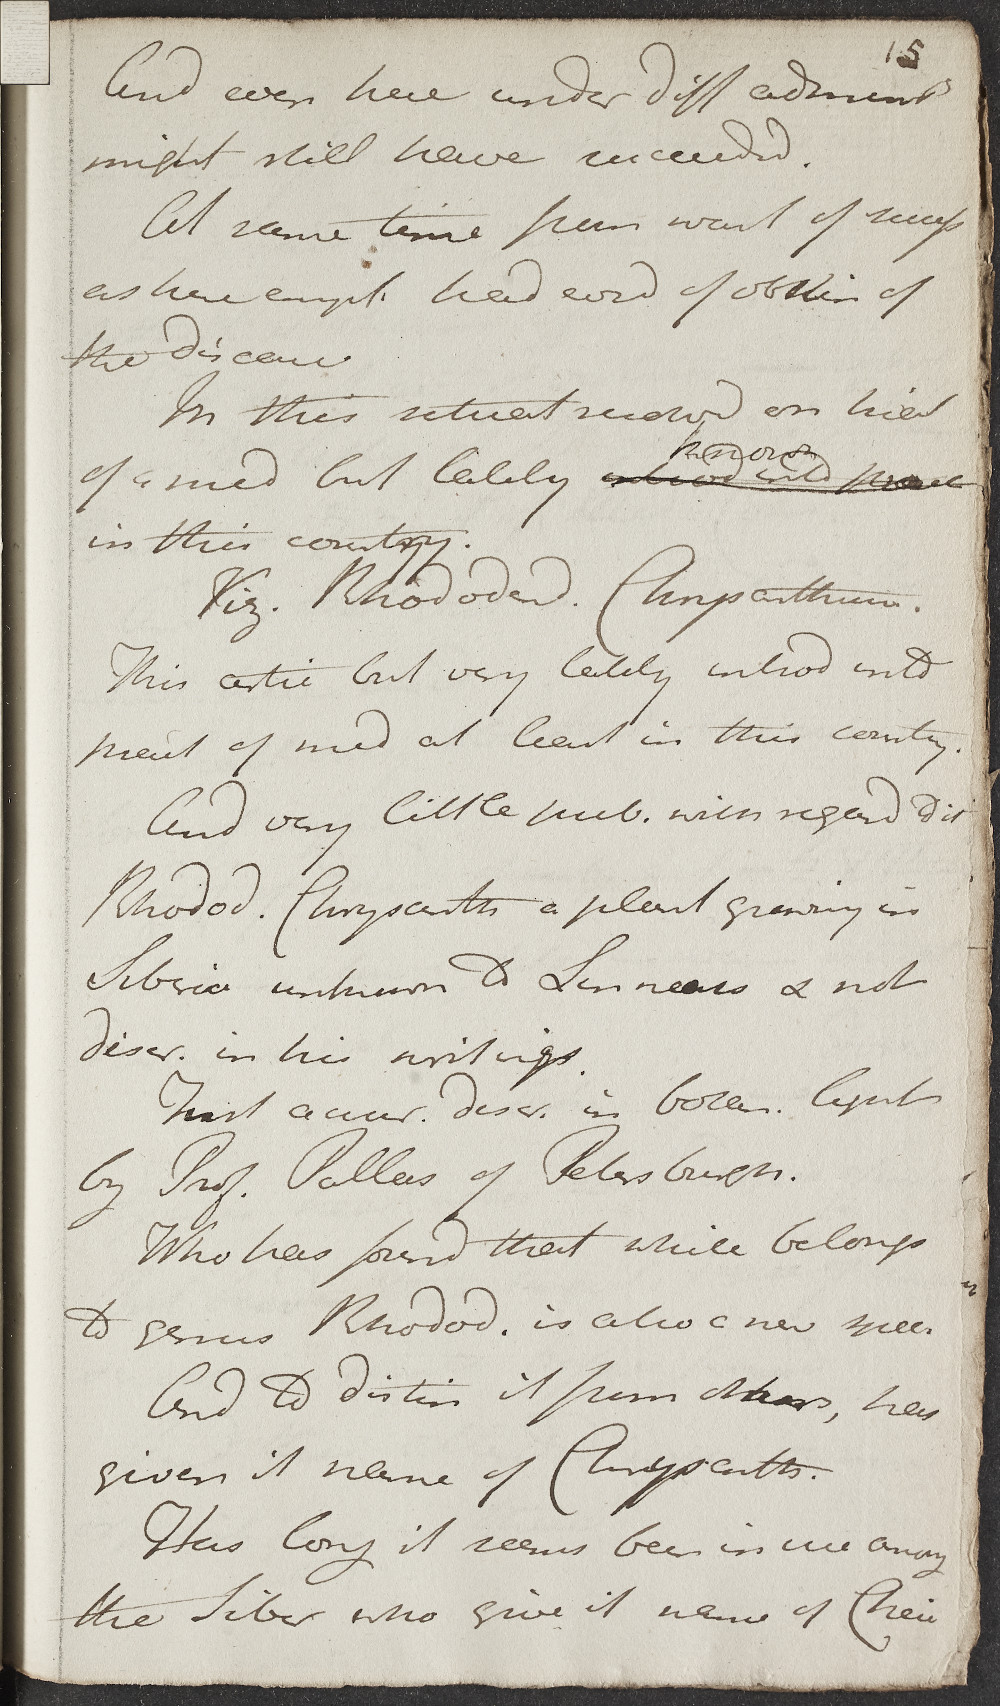 15
And even here under diff adminr
might still have succeeded.
At same time from want of success
as here empl. had evid of obstin of
the disease
In this situat resolvd on trial
of a med but lately known
introd into pract
in this country.
Viz. Rhododend. Chrysanthum.
This artic but very lately introd into
pract of med at least in this country.
And very little pub. with regard to it
Rhodod. Chrysanth a plant growing in
Siberia unknown to Linneaus & not
descr. in his writings.
First accur. descr. in botan. light
by Prof. Pallas of Petersburgh.
Who has found that while belongs
to genus Rhodod. is also a new spec.
And to distin it from others, has
given it name of Chrysanth.
Has long it seems been in use among
the Siber who give it name of Chei